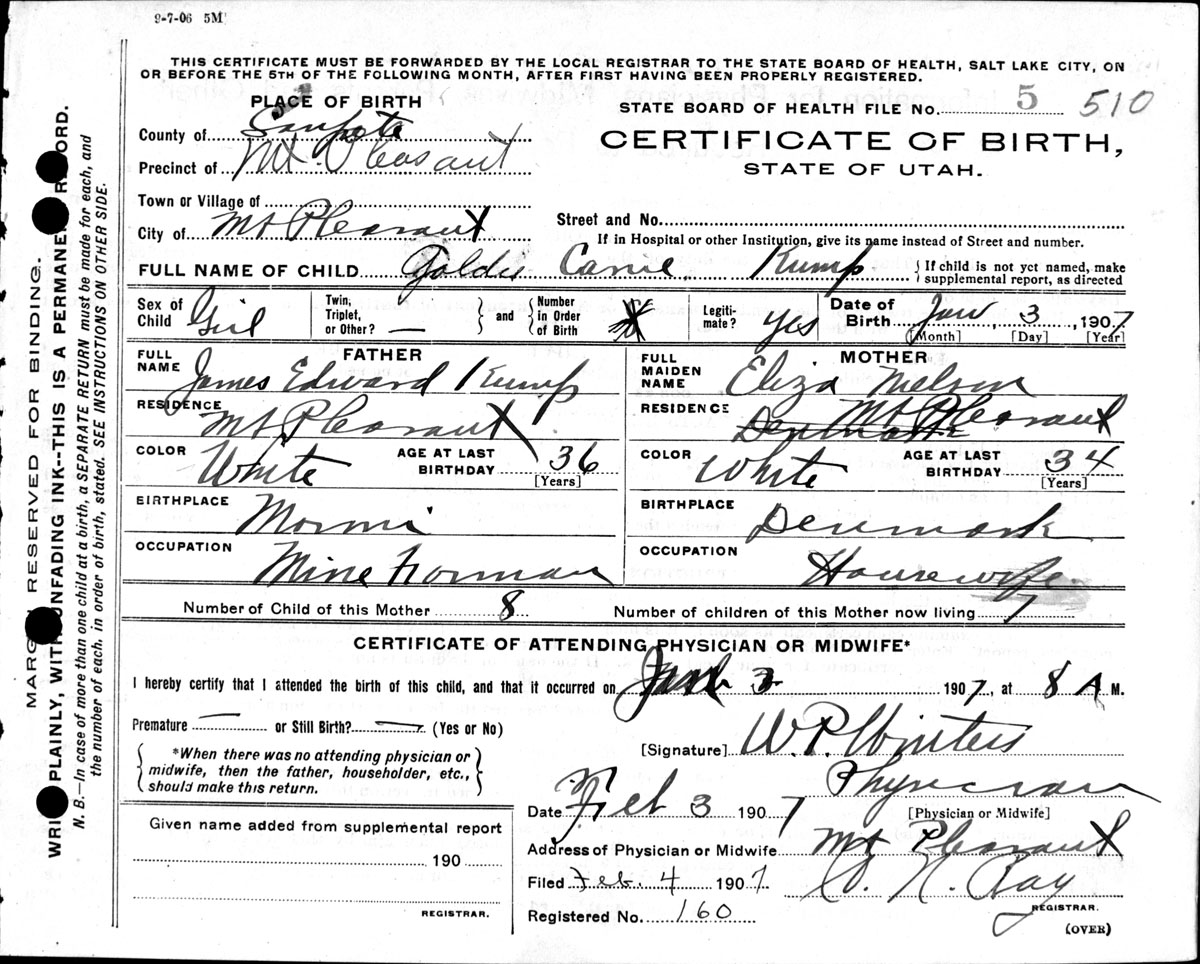 9-7-06 5M
THIS CERTIFICATE MUST BE FORWARDED BY THE LOCAL REGISTRAR TO THE STATE BOARD OF HEALTH, SALT LAKE CITY, ON
OR BEFORE THE 5TH OF THE FOLLOWING MONTH, AFTER FIRST HAVING BEEN PROPERLY REGISTERED.
PLACE OF BIRTH
STATE BOARD OF HEALTH FILE No. 5 510
County of Sanpete
CERTIFICATE OF BIRTH,
Precinct of Mt. Pleasant
STATE OF UTAH.
Town or Village of
Street and No.
City of Mt Pleasant
If in Hospital or other Institution, give its name instead of Street and number.
FULL NAME OF CHILD Goldie Kump { If child is not yet named, make
supplemental report, as directed
Sex of Child Girl
Twin, Triplet, or Other? —
and
Number in Order of Birth
Legiti-mate? yes
Date of Birth Jan 3, 1907
[Month] [Day] [Year]
FATHER
FULL NAME James Edward Kump
MOTHER
FULL MAIDEN NAME Eliza Nelson
RESIDENCE Mt Pleasant
RESIDENCE Denmark Mt Pleasant
COLOR White AGE AT LAST BIRTHDAY 36 [Years]
COLOR White AGE AT LAST BIRTHDAY 34 [Years]
BIRTHPLACE
BIRTHPLACE Denmark
OCCUPATION Mine Forman
OCCUPATION Housewife
Number of Child of this Mother 8 Number of children of this Mother now living 7
CERTIFICATE OF ATTENDING PHYSICIAN OR MIDWIFE*
I hereby certify that I attended the birth of this child, and that it occurred on 3 1907, at 8 A M.
Premature — or Still Birth? — (Yes or No)
[Signature] W. P. Winters
*When there was no attending physician or
midwife, then the father, householder, etc.,
should make this return.
Physician
Date Feb 3 1907
[Physician or Midwife]
Given name added from supplemental report
Address of Physician or Midwife Mt Pleasant
190
Filed Feb. 4 1907. N. Ray
REGISTRAR. REGISTRAR.
Registered No. 160
(OVER)
MARGIN RESERVED FOR BINDING.
WRITE PLAINLY, WITH UNFADING INK--THIS IS A PERMANENT RECORD.
N. B.—In case of more than one child at a birth, a SEPARATE RETURN must be made for each, and
the number of each, in order of birth, stated. SEE INSTRUCTIONS ON OTHER SIDE.